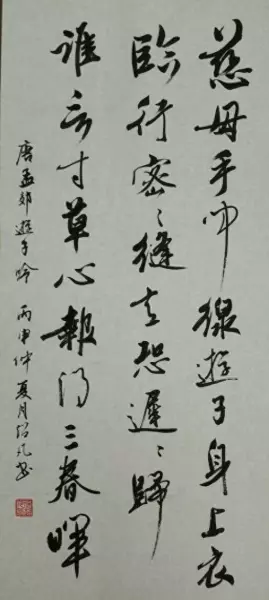 慈母手中線遊子身上衣
臨行密〻縫意恐遲〻歸
誰言寸草心報得三春暉
唐孟郊遊子吟 丙申仲夏月書